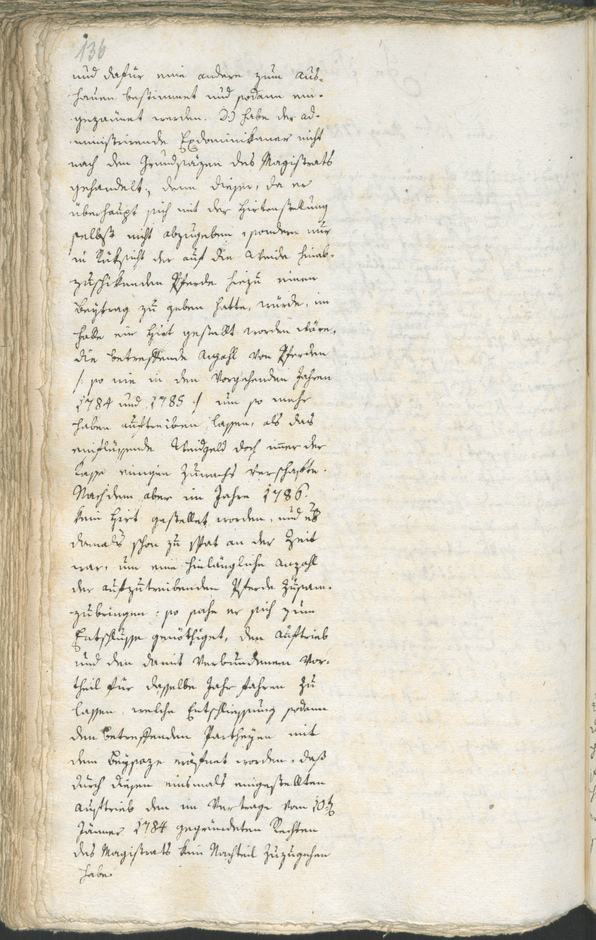 136
und dafür eine andere zum aus-
hauen bestimmet und sodann ein-
gezäunet werden. habe der ad-
ministrirende Exdominikaner nicht
nach den Grundsäzen des Magistrats
gehandelt, denn dieser, da er
überhaupt sich mit der Hirtenstellung
selbst nicht abzugeben, sondern nur
in Rüksicht der auf die Weide hinab-
zuschikenden Pferde hiezu einen
Beytrag zu geben hatte, würde, im
falle ein Hirt gestellt worden wäre,
die betreffende Anzahl von Pferden
/: so wie in den Vorgehenden Jahren
1784 und 1785 :/ um so mehr
haben auftreiben lassen, als das
einflüssende Weidgeld doch immer der
Cassa einigen Zuwachs verschafte.
Nachdem aber im Jahre 1786
kein Hirt gestellet worden, und es
damals schon zu spat an der Zeit
war, um eine hinlängliche Anzahl
der aufzutreibenden Pferde zusam-
zubringen: so sahe er sich zum
Entschlusse genöthiget, den Auftrieb
und den damit verbundenen Vor-
theil für dasselbe Jahr fahren zu
lassen, welche Entschliessung sodann
den betreffenden Partheyen mit
dem Beysaze eröfnet worden, daß
durch diesen einsmals eingestellten
Auftrieb den im Vertrage vom 10t
Jänner 1784 gegründeten Rechten
des Magistrats kein Nachteil zuzugehen
habe.